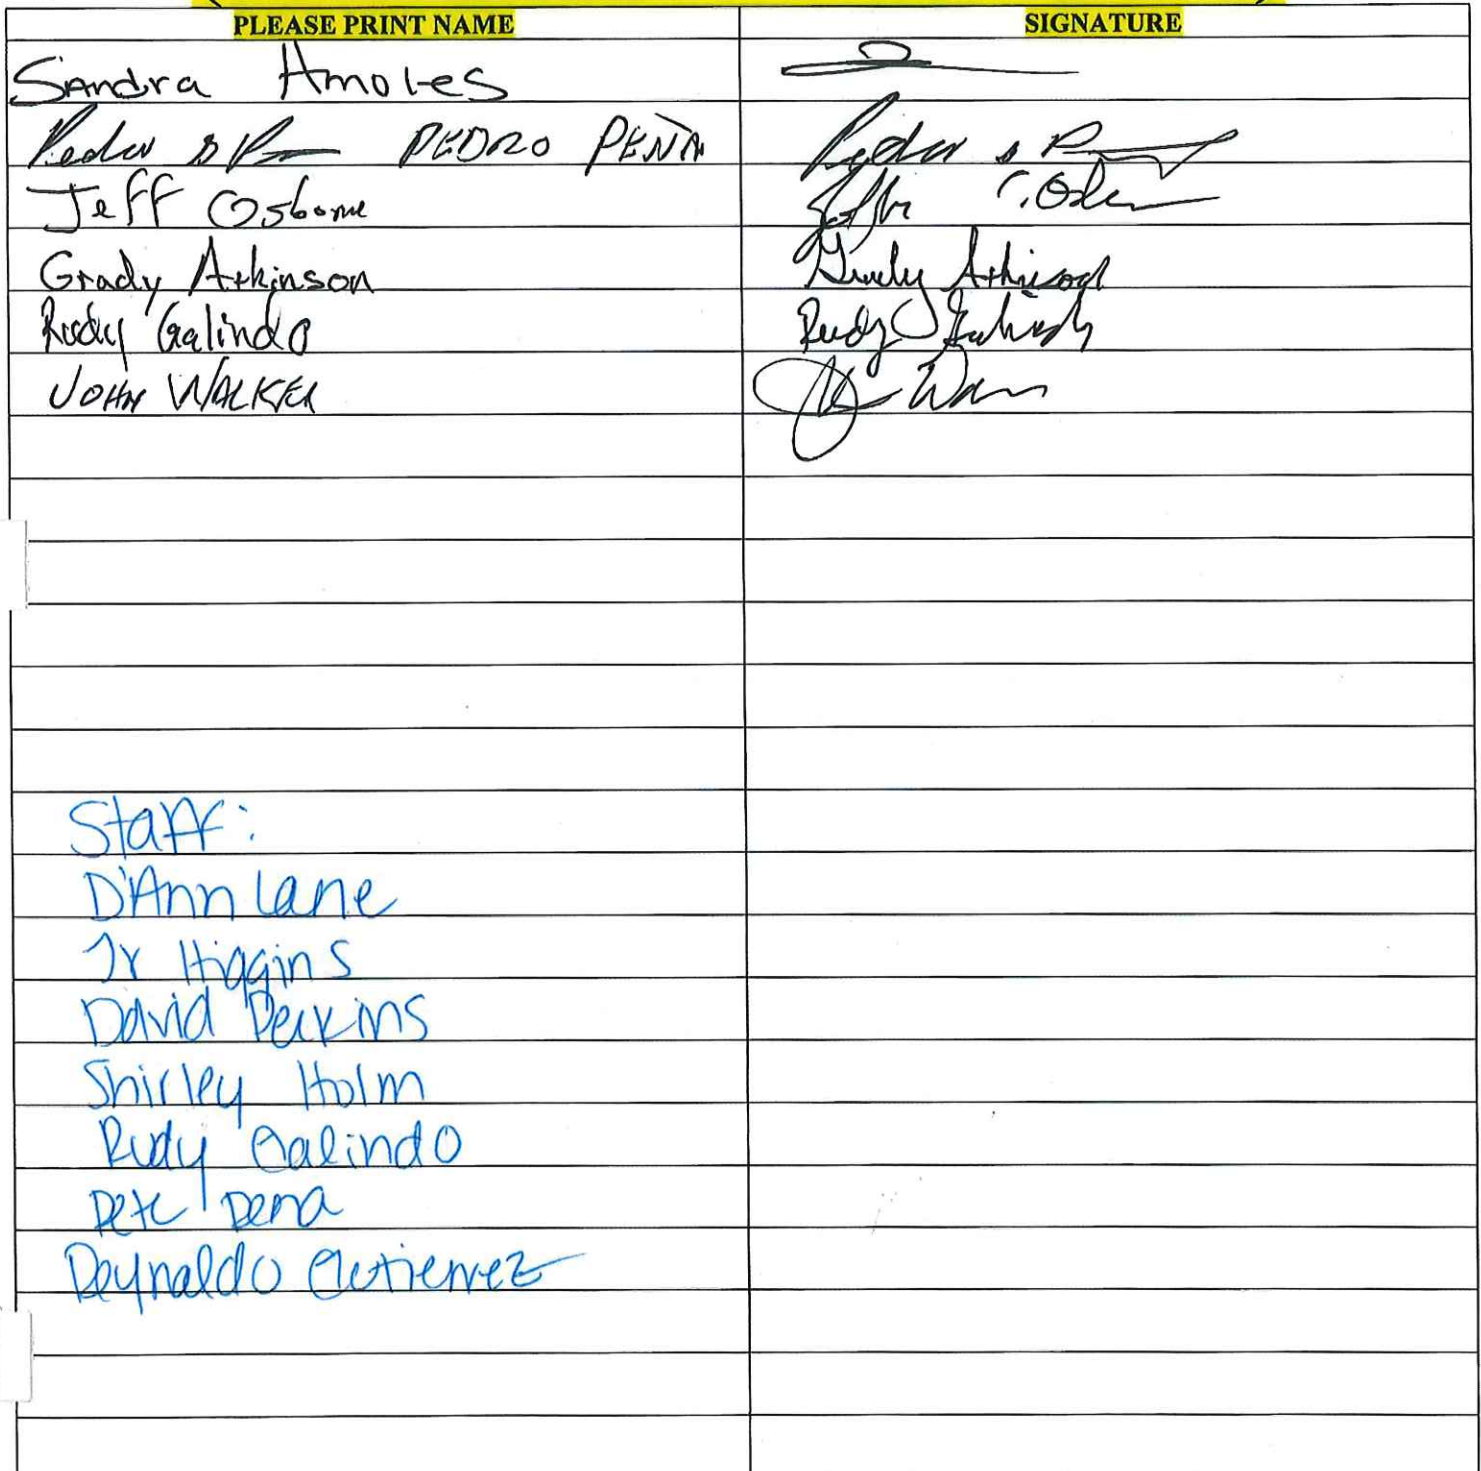 PLEASE PRINT NAME SIGNATURE
Sandra Amoles
PEDRO PEÑA Pedro
Jeff Osborne
Grady Atkinson Grady Atkinson
Rudy Galindo Rudy Galindo
JOHN WALKER
Staff:
D'Ann Lane
Jr Higgins
David Perkins
Shirley Holm
Rudy Galindo
Pete Pena
Reynaldo Gutierrez